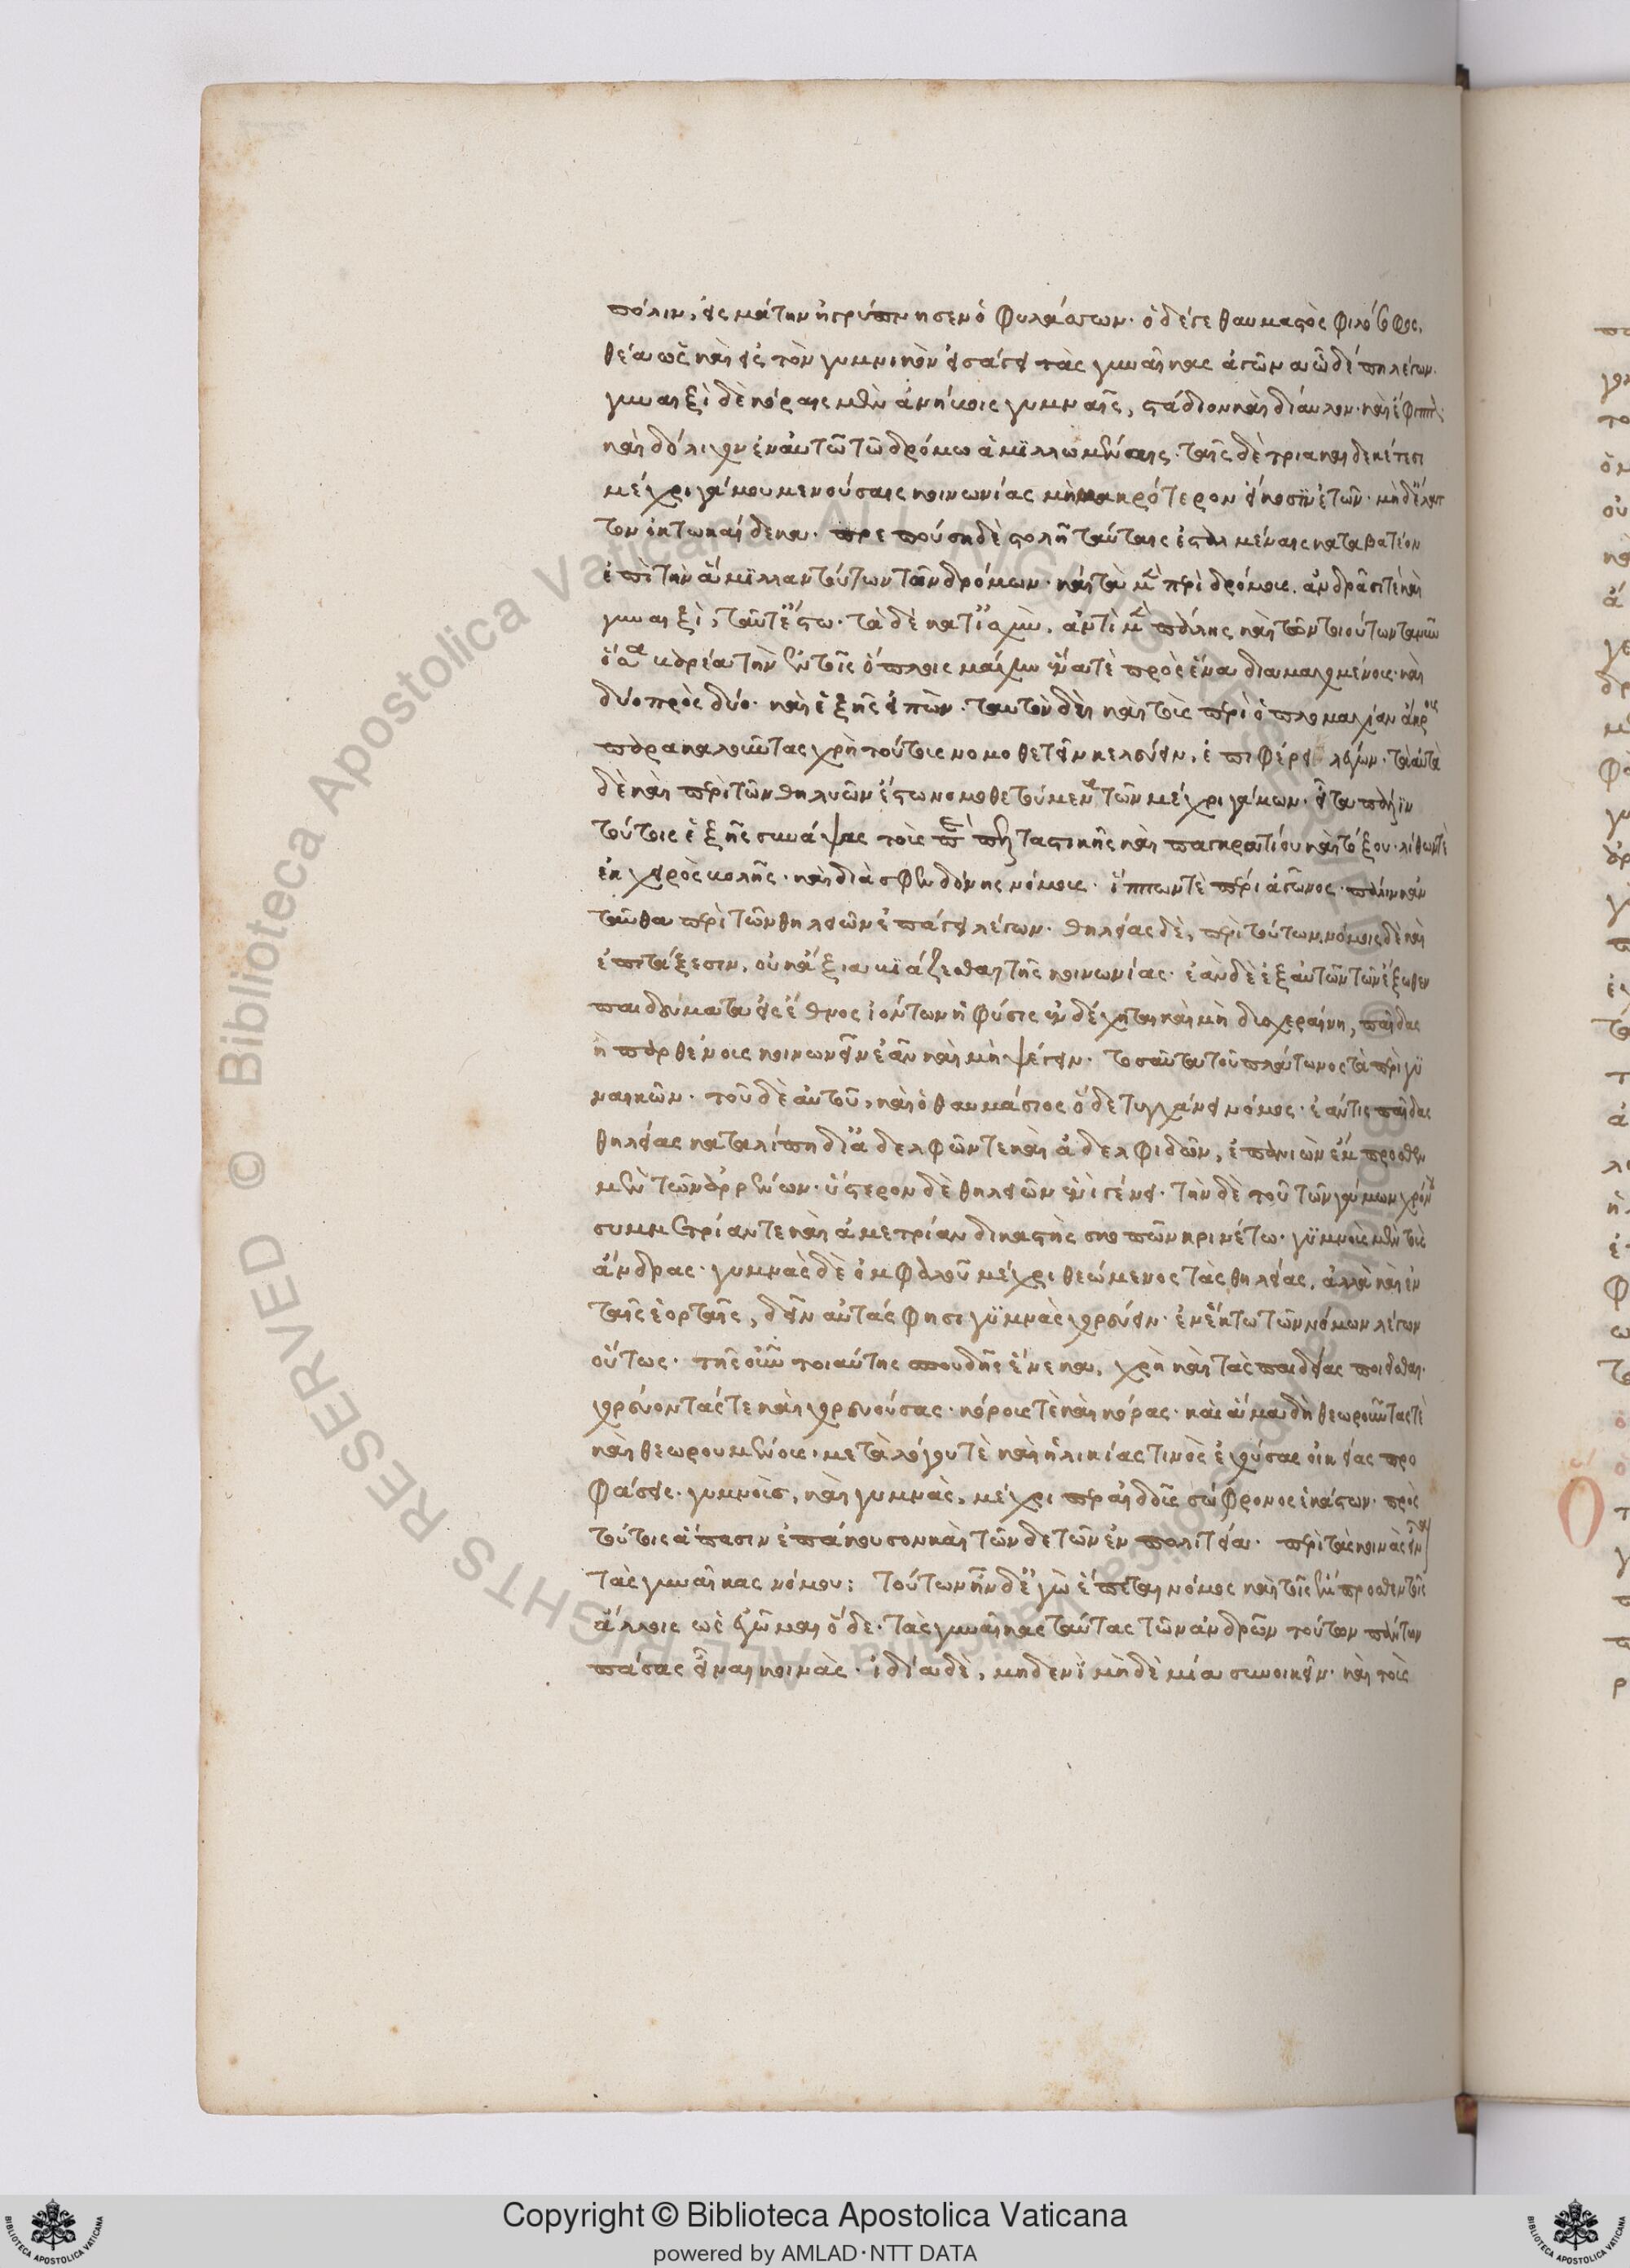 πόλιν, εἰς μάτην ἠγρύπνησεν ὁ φυλάσσων· ὁ δέ γε θαυμαστὸς φιλόσοφος,
θέα ὡς καὶ εἰς τὸν γυμνικὸν εἰσάγει τὰς γυναῖκας ἀγῶνα ὧδέ πη λέγων·
γυναιξὶ δὲ κόραις μὲν ἀνήβοις γυμναῖς, στάδιον καὶ δίαυλον· καὶ ἐφίππιον·
καὶ δόλιχον ἐν αὐτῶ τῶ δρόμω ἁμιλλωμέναις· ταῖς δὲ τριακαιδεκέτεσι
μέχρι γάμου μενούσαις κοινωνίας μὴ μακρότερον εἴκοσιν ἐτῶν· μὴ δ' ἔλαττ
τον ὀκτωκαίδεκα· πρεπούση δὲ στολῆ ταύταις ἐσταλμέναις καταβατέον
ἐπὶ τὴν ἅμιλλαν τούτων τῶν δρόμων· καὶ τὰ μὲν περὶ δρόμους. ἀνδράσι τὲ καὶ
γυναιξὶ, ταῦτ' ἔστω· τὰ δὲ κατ' ἰσχὺν, ἀντὶ μὲν πάλης καὶ τῶν τοιούτων τὰ νῦν
ὅσα βαρέα τὴν ἐν τοῖς ὅπλοις μάχην ἕνα τὲ πρὸς ἕνα διαμαχομένους· καὶ
δύο πρὸς δύο· καὶ ἑξῆς εἰπὼν· ταυτὸν δὴ καὶ τοὺς περὶ ὁπλομαχίαν ἄκρους
παρακαλοῦντας χρὴ τούτοις νομοθετεῖν κελεύειν, ἐπιφέρει λέγων· τὰ αὐτὰ
δὲ καὶ περὶ τῶν θηλυῶν ἔστω νομοθετούμενα τῶν μέχρι γάμων· εἶτα πάλιν
τούτοις ἑξῆς συνάψας τοὺς περὶ πελταστικῆς καὶ παγκρατίου καὶ τόξου· λίθων τὲ
ἐκ χειρὸς βολῆς· καὶ διὰ σφενδόνης νόμους· ἵππων τὲ περὶ ἀγῶνος· πάλιν κἀν
ταῦθα περὶ τῶν θηλειῶν ἐπάγει λέγων· θηλείας δὲ, περὶ τούτων νόμοις δὲ καὶ
ἐπιτάξεσιν, οὐκ ἄξια βιάζεσθαι τῆς κοινωνίας· ἐὰν δὲ ἐξ αὐτῶν τῶν ἔξωθεν
παιδευμάτα εἰς ἔθνος ἰόντων ἡ φύσις ἐνδέχηται καὶ μὴ δυσχεραίνη, παῖδας
ἢ παρθένους κοινωνεῖν ἐᾶν καὶ μὴ ψέγειν· τοσαῦτα τοῦ πλάτωνος τὰ περὶ γυ
ναικῶν· τοῦ δὲ αὐτοῦ, καὶ ὁ θαυμάσιος ὅδε τυγχάνει νόμος· ἐάν τις παῖδας
θηλείας καταλίπη δι' ἀδελφῶν τε καὶ ἀδελφιδῶν, ἐπανιὼν ἔμπροσθεν
μὲν τῶν ἀρρένων· ὕστερον δὲ θηλειῶν ἑνὶ γένει· τὴν δὲ τοῦ τῶν γάμων χρόνου
συμμετρίαν τε καὶ ἀμετρίαν δικαστὴς σκοπῶν κρινέτω· γυμνοὺς μὲν τοὺς
ἄνδρας· γυμνὰς δὲ ὀμφαλοῦ μέχρι θεώμενος τὰς θηλείας. ἀλλὰ καὶ ἐν
ταῖς ἑορταῖς, δεῖν αὐτάς φησι γυμνὰς χορεύειν· ἐν ἕκτω τῶν νόμων λέγων
οὕτως· τῆς οὖν τοιαύτης σπουδῆς ἕνεκα, χρὴ καὶ τὰς παιδείας ποιεῖσθαι·
χορεύοντάς τε καὶ χορευούσας· κόρους τὲ καὶ κόρας· καὶ ἅμα δὴ θεωροῦντάς τὲ
καὶ θεωρουμένους· μετὰ λόγου τὲ καὶ ἡλικίας τινὸς ἐχούσας οἰκείας προ
φάσεις· γυμνοὺς, καὶ γυμνὰς, μέχρι περ αἰδοῦς σώφρονος ἑκάστων· πρὸς
τούτοις ἅπασιν ἐπάκουσον καὶ τῶνδε τῶν ἐν πολιτεία· περὶ τὰς κοινὰς εἶναι
τὰς γυναῖκας νόμου: τούτων ἦν δ' ἐγὼ ἕπεται νόμος καὶ τοῖς ἔμπροσθεν τοῖς
ἄλλοις ὡς ἐγῶμαι ὅδε· τὰς γυναῖκας ταύτας τῶν ἀνδρῶν τούτων πάντων
πάσας εἶναι κοινὰς· ἰδία δὲ, μηδενὶ μηδὲ μία συνοικεῖν· καὶ τοὺς
Copyright © Biblioteca Apostolica Vaticana
powered by AMLAD·NTT DATA